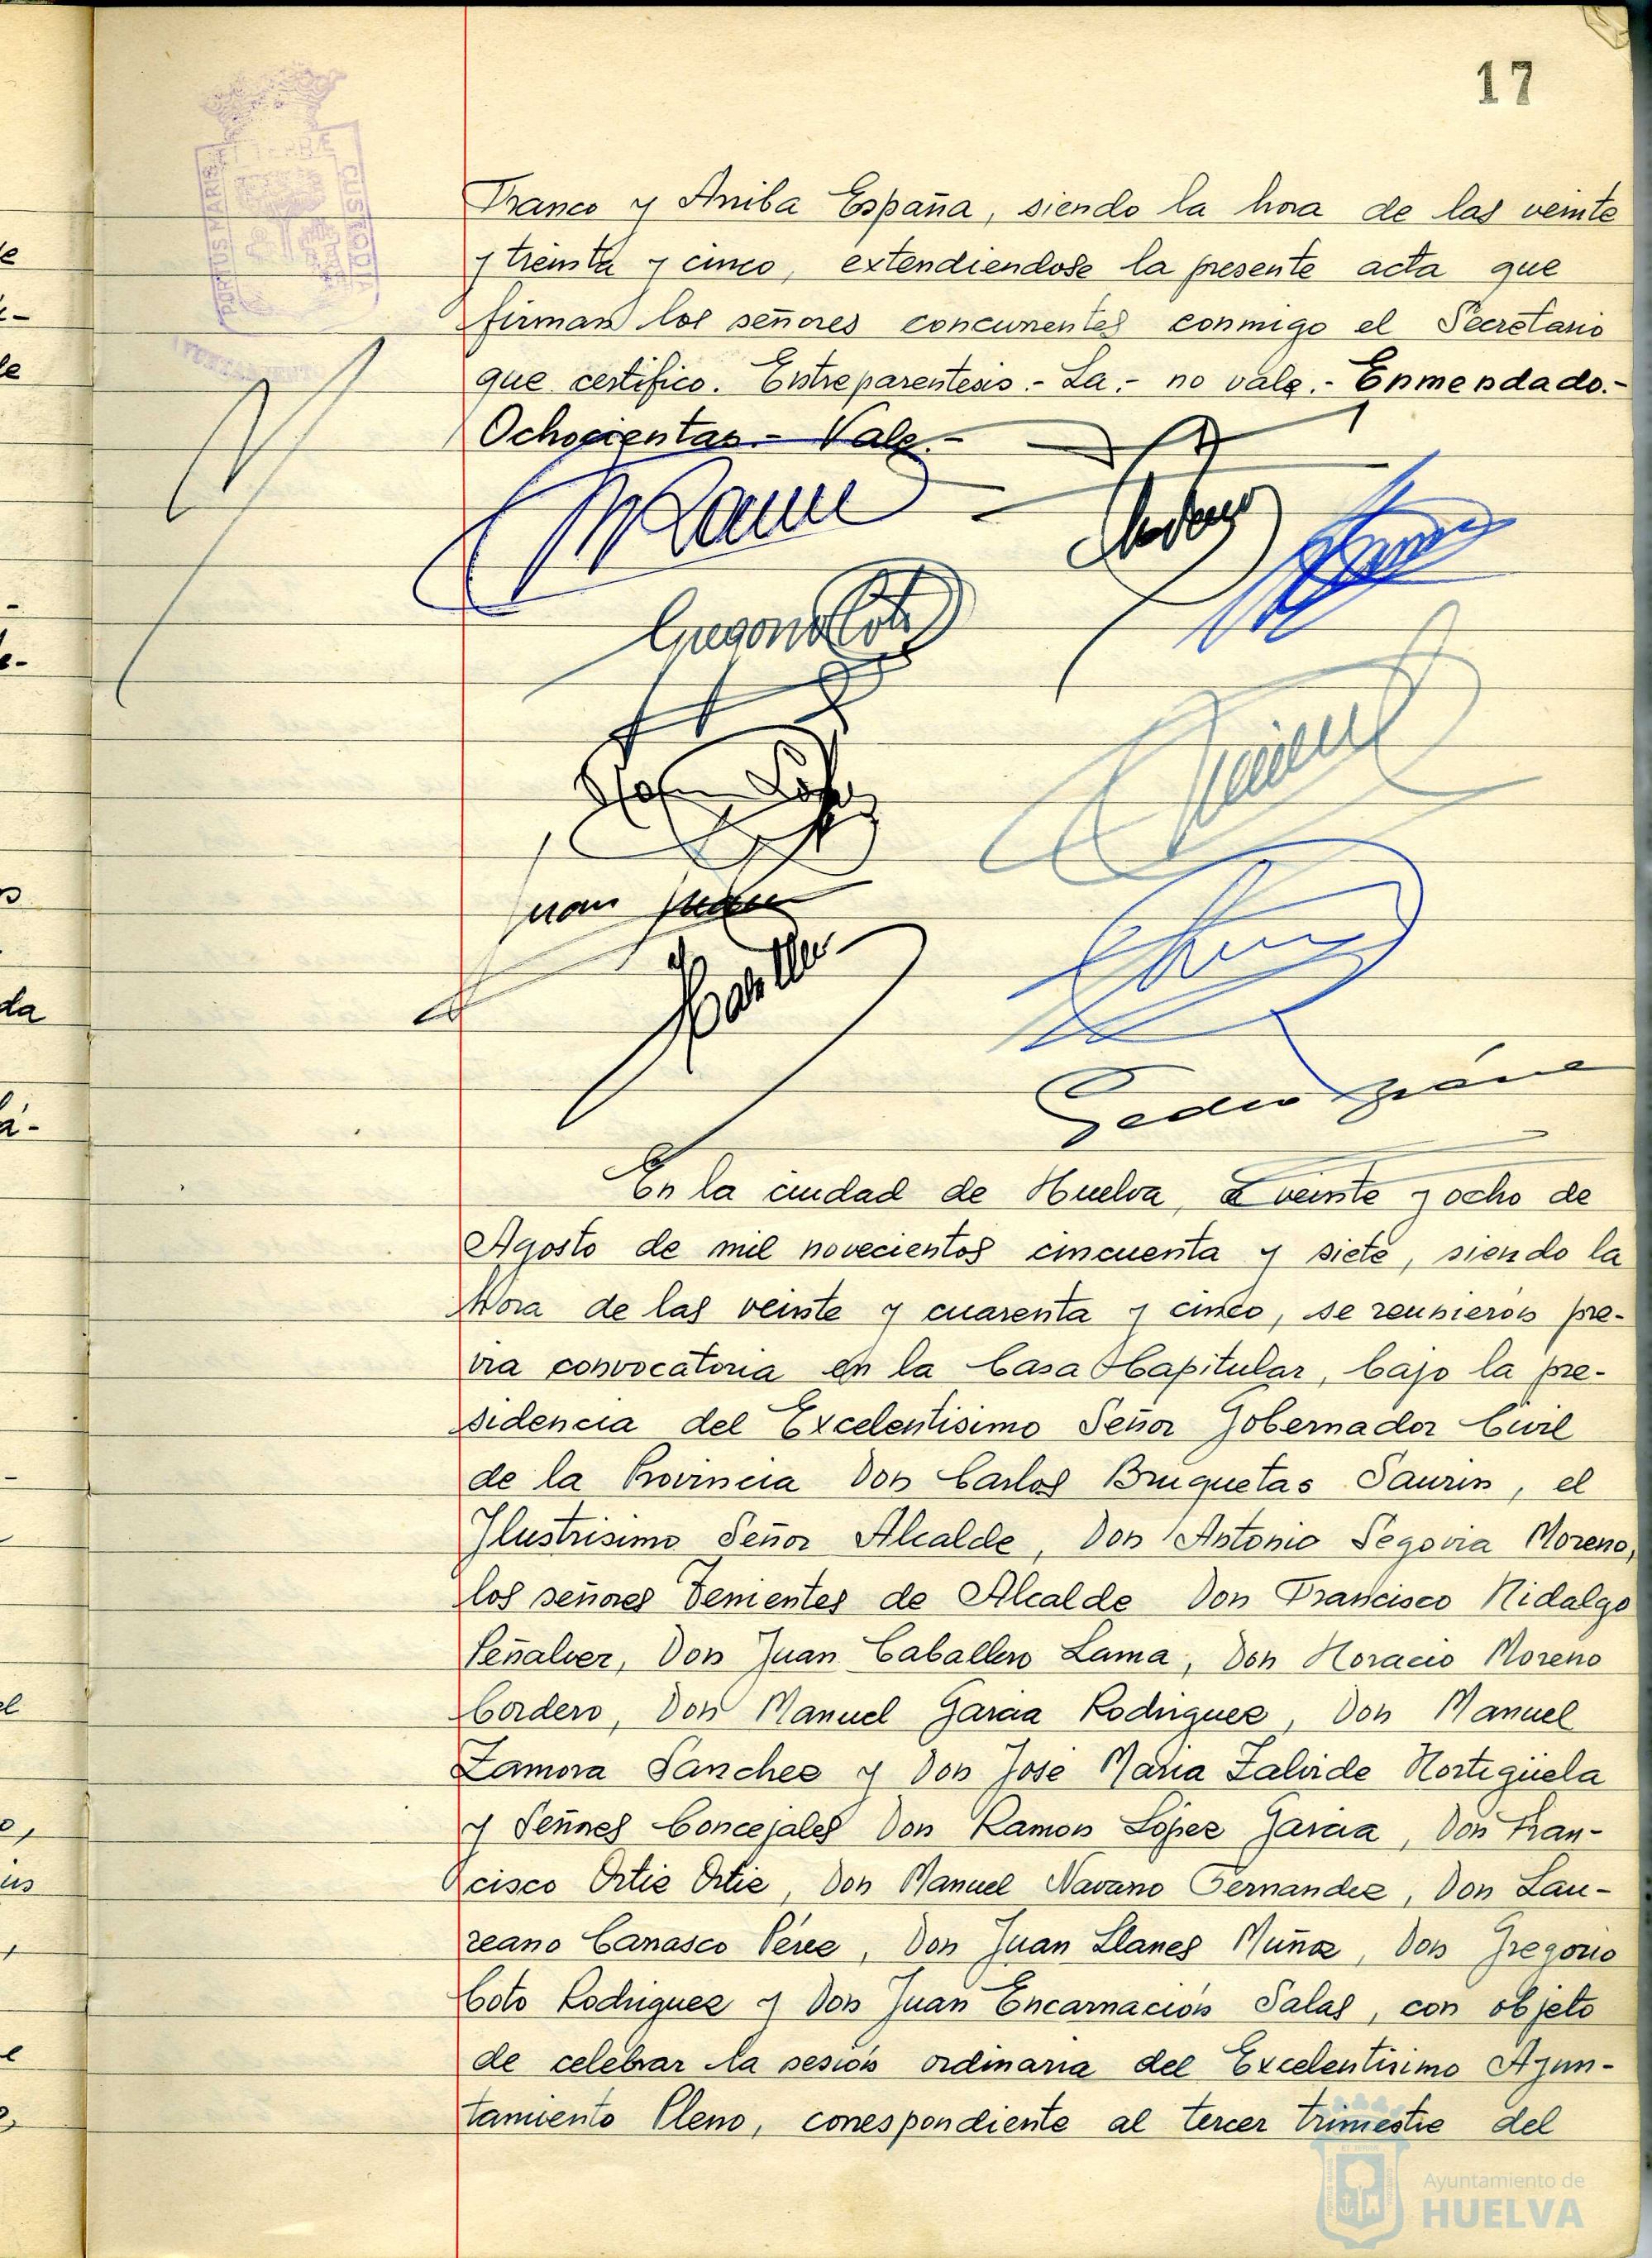 17
PORTUS MARIS ET TERRAE CUSTODIA
AYUNTAMIENTO
Franco y Arriba España, siendo la hora de las veinte
y treinta y cinco, extendiendose la presente acta que
firman los señores concurrentes conmigo el Secretario
que certifico. Entreparentesis.- La.- no vale.- Enmendado.-
Ochocientas.- Vale.-
Gregorio Coto
Juan
Pedro
En la ciudad de Huelva, a veinte y ocho de
Agosto de mil novecientos cincuenta y siete, siendo la
hora de las veinte y cuarenta y cinco, se reunieron pre-
via convocatoria en la Casa Capitular, bajo la pre-
sidencia del Excelentisimo Señor Gobernador Civil
de la Provincia Don Carlos Bruquetas Saurin, el
Ilustrisimo Señor Alcalde, Don Antonio Segovia Moreno,
los señores Tenientes de Alcalde Don Francisco Hidalgo
Peñalver, Don Juan Caballero Lama, Don Horacio Moreno
Cordero, Don Manuel Garcia Rodriguez, Don Manuel
Zamora Sanchez y Don Jose Maria Zalvide Hortigüela
y Señores Concejales Don Ramon López Garcia, Don Fran-
cisco Ortiz Ortiz, Don Manuel Navarro Fernandez, Don Lau-
reano Carrasco Pérez, Don Juan Llanes Muñoz, Don Gregorio
Coto Rodriguez y Don Juan Encarnación Salas, con objeto
de celebrar la sesión ordinaria del Excelentisimo Ayun-
tamiento Pleno, correspondiente al tercer trimestre del
Ayuntamiento de
HUELVA